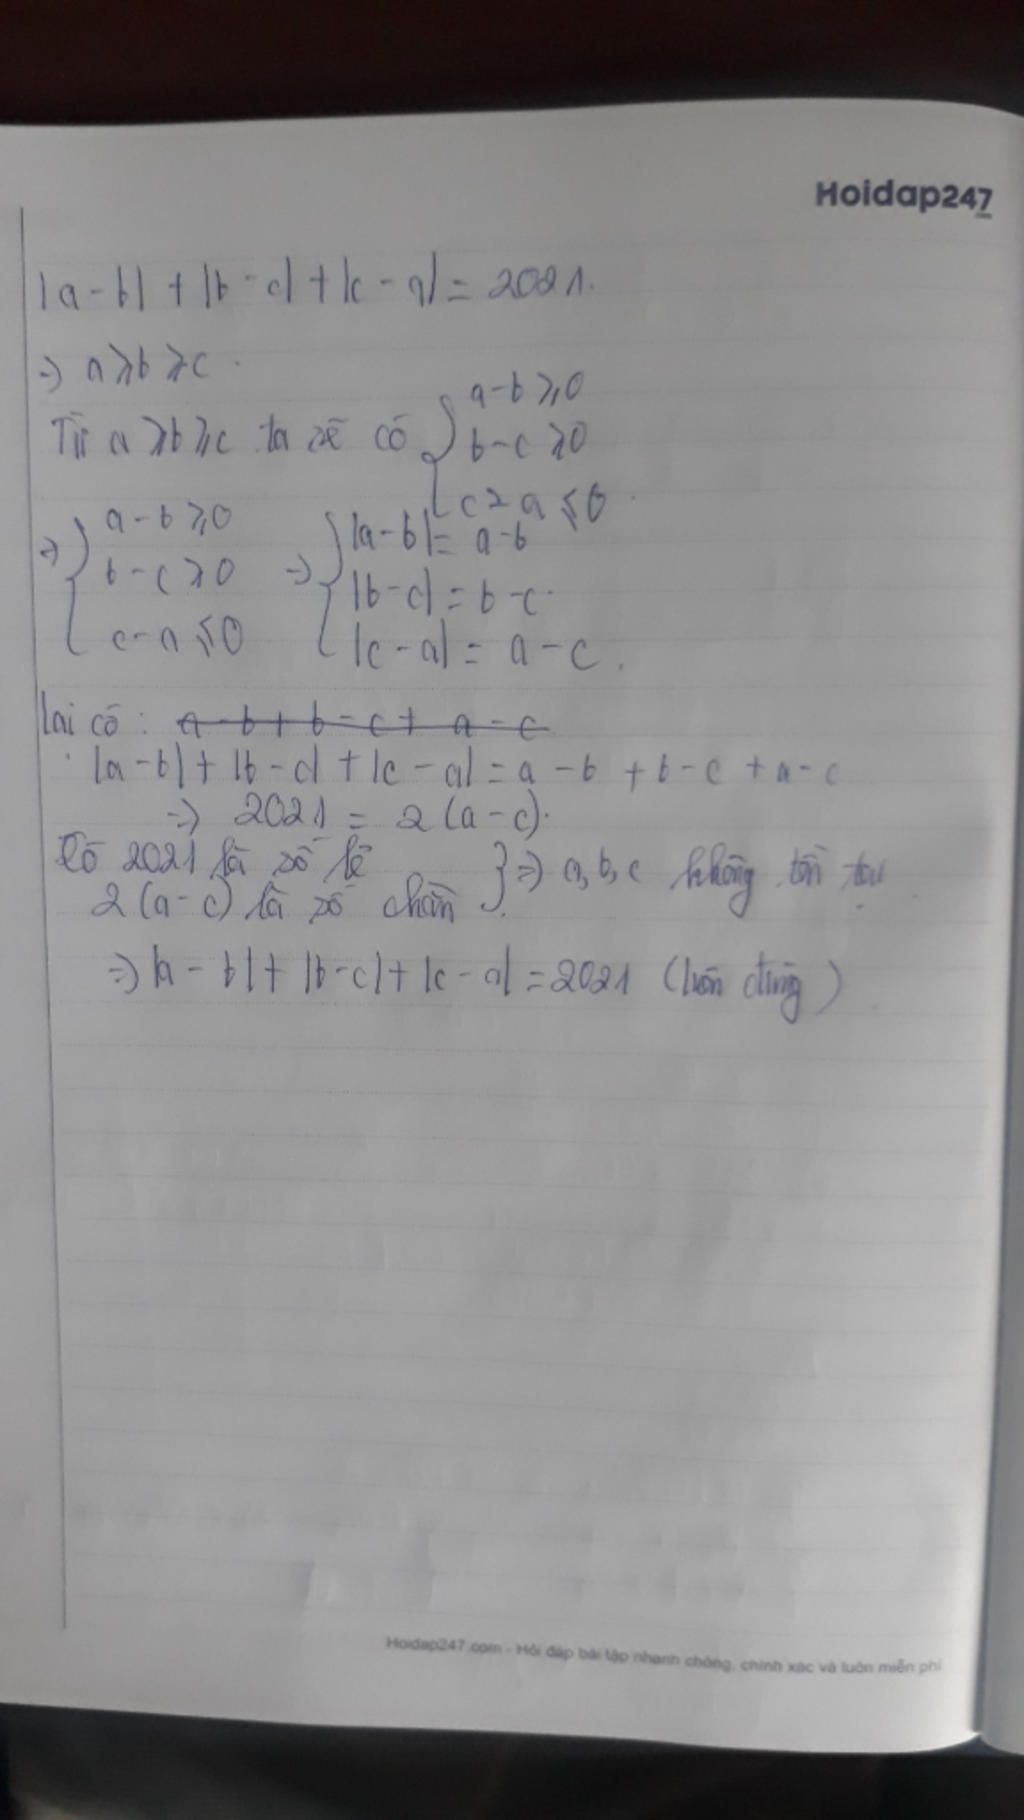 Hoidap247
|a-b| + |b-c| + |c-a| = 2021.
=> a ≥ b ≥ c.
Từ a ≥ b ≥ c ta sẽ có { a-b ≥ 0
b-c ≥ 0
c-a ≤ 0.
=> { a-b ≥ 0
b-c ≥ 0
c-a ≤ 0
=> { |a-b| = a-b
|b-c| = b-c.
|c-a| = a-c.
lại có: a-b+b-c+a-c
|a-b| + |b-c| + |c-a| = a-b + b-c + a-c
=> 2021 = 2(a-c).
Có 2021 là số lẻ
2(a-c) là số chẵn
} => a, b, c không tồn tại
=> |a-b| + |b-c| + |c-a| = 2021 (luôn đúng)
Hoidap247.com - Hỏi đáp bài tập nhanh chóng, chính xác và luôn miễn phí